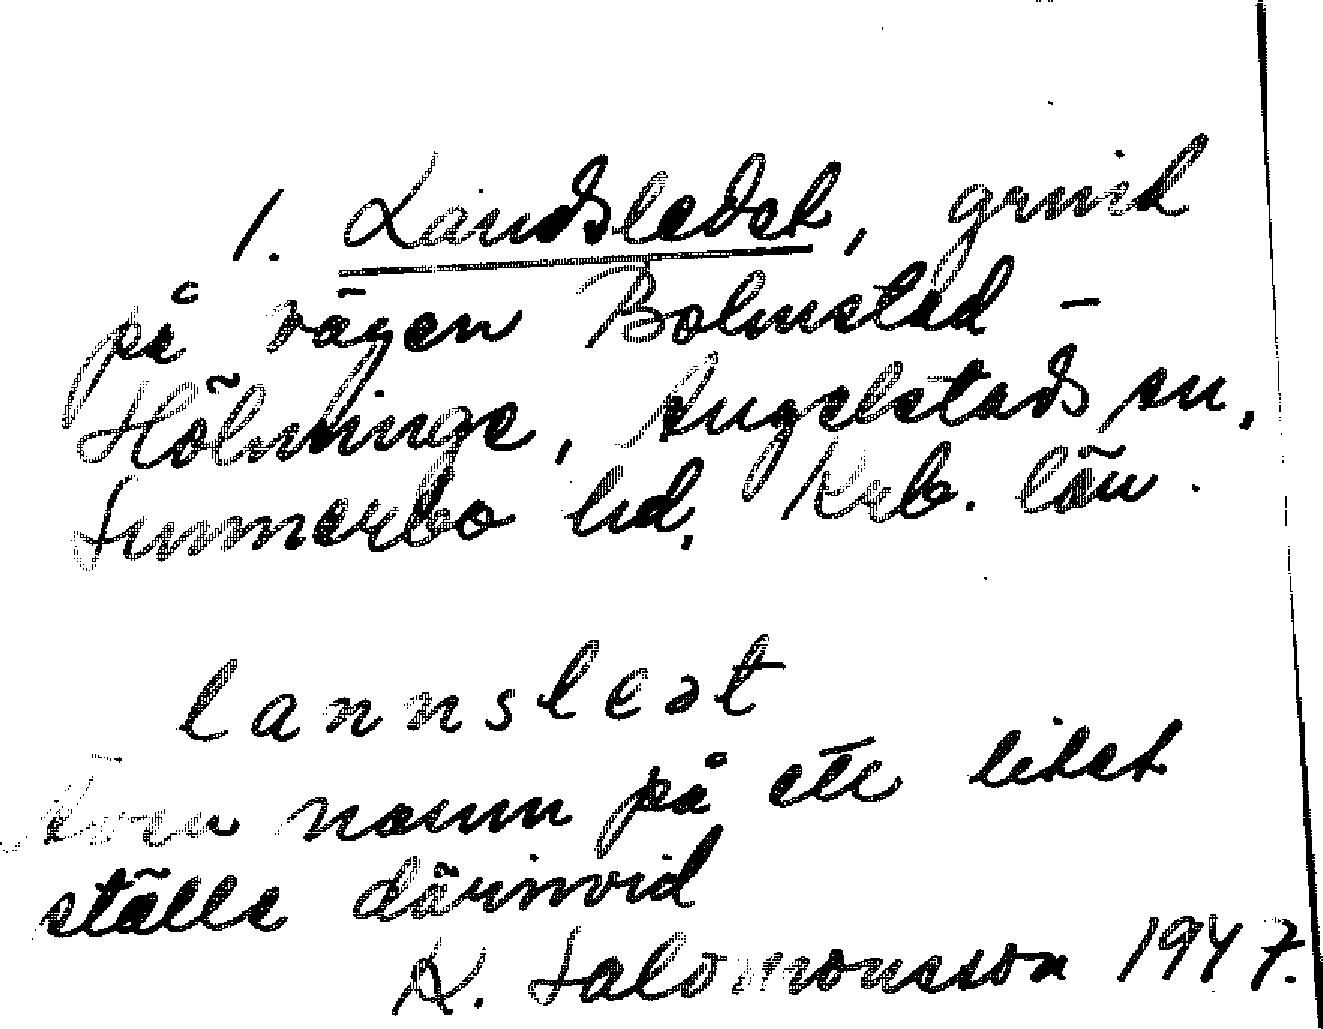 1. Landsledet, grind
på vägen Bolmstad –
Hölminge, Angelstads sn,
Sunnerbo hd, Krb. län.
lannsleət
Även namn på ett litet
ställe därinvid
K. Salomonsson 1947.